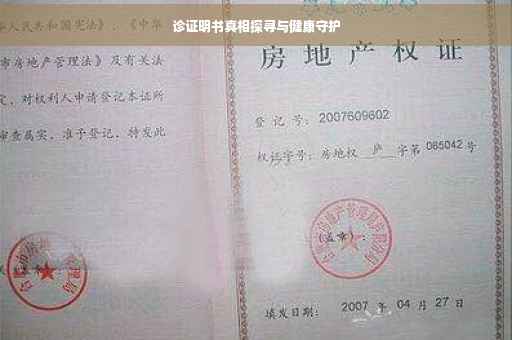 诊证明书真相探寻与健康守护
人民共和国宪法》、《中华
市房地产管理法》及有关法
定,对权利人申请登记本证所
审查属实,准予登记,特发此
房地产权证
登记号:2007609602
权证字号:房地权 庐 字第 085042 号
(盖章):
填发日期: 2007 年 04 月 27 日